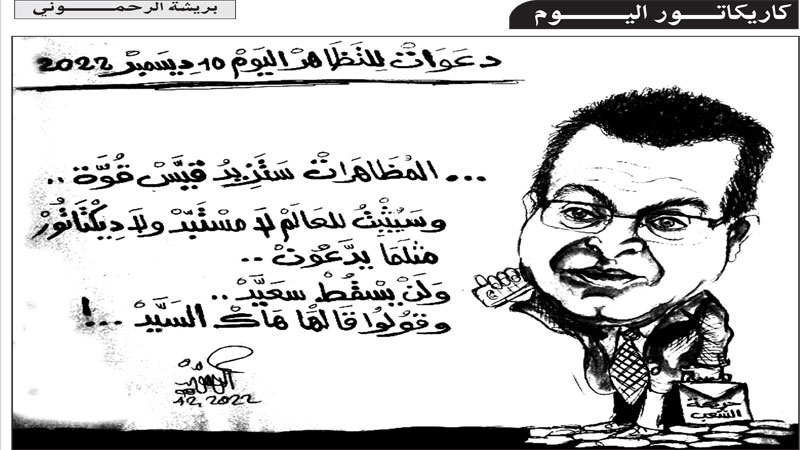 كاريكاتور اليوم
بريشة الرحموني
دعوات للتظاهر اليوم 10 ديسمبر 2022
... المُظاهرات ستزيدُ قيّسْ قُوّة ..
وسيُثْبِتُ للعالمْ لا مسْتبدّ ولا دِيكْتاتُورْ
مثلما يدّعون ..
ولنْ يسقُطْ سعيَّدْ ..
وقولوا قالها هاك السيّدْ ...!
الرحموني
12.2022
حركة
الشعب